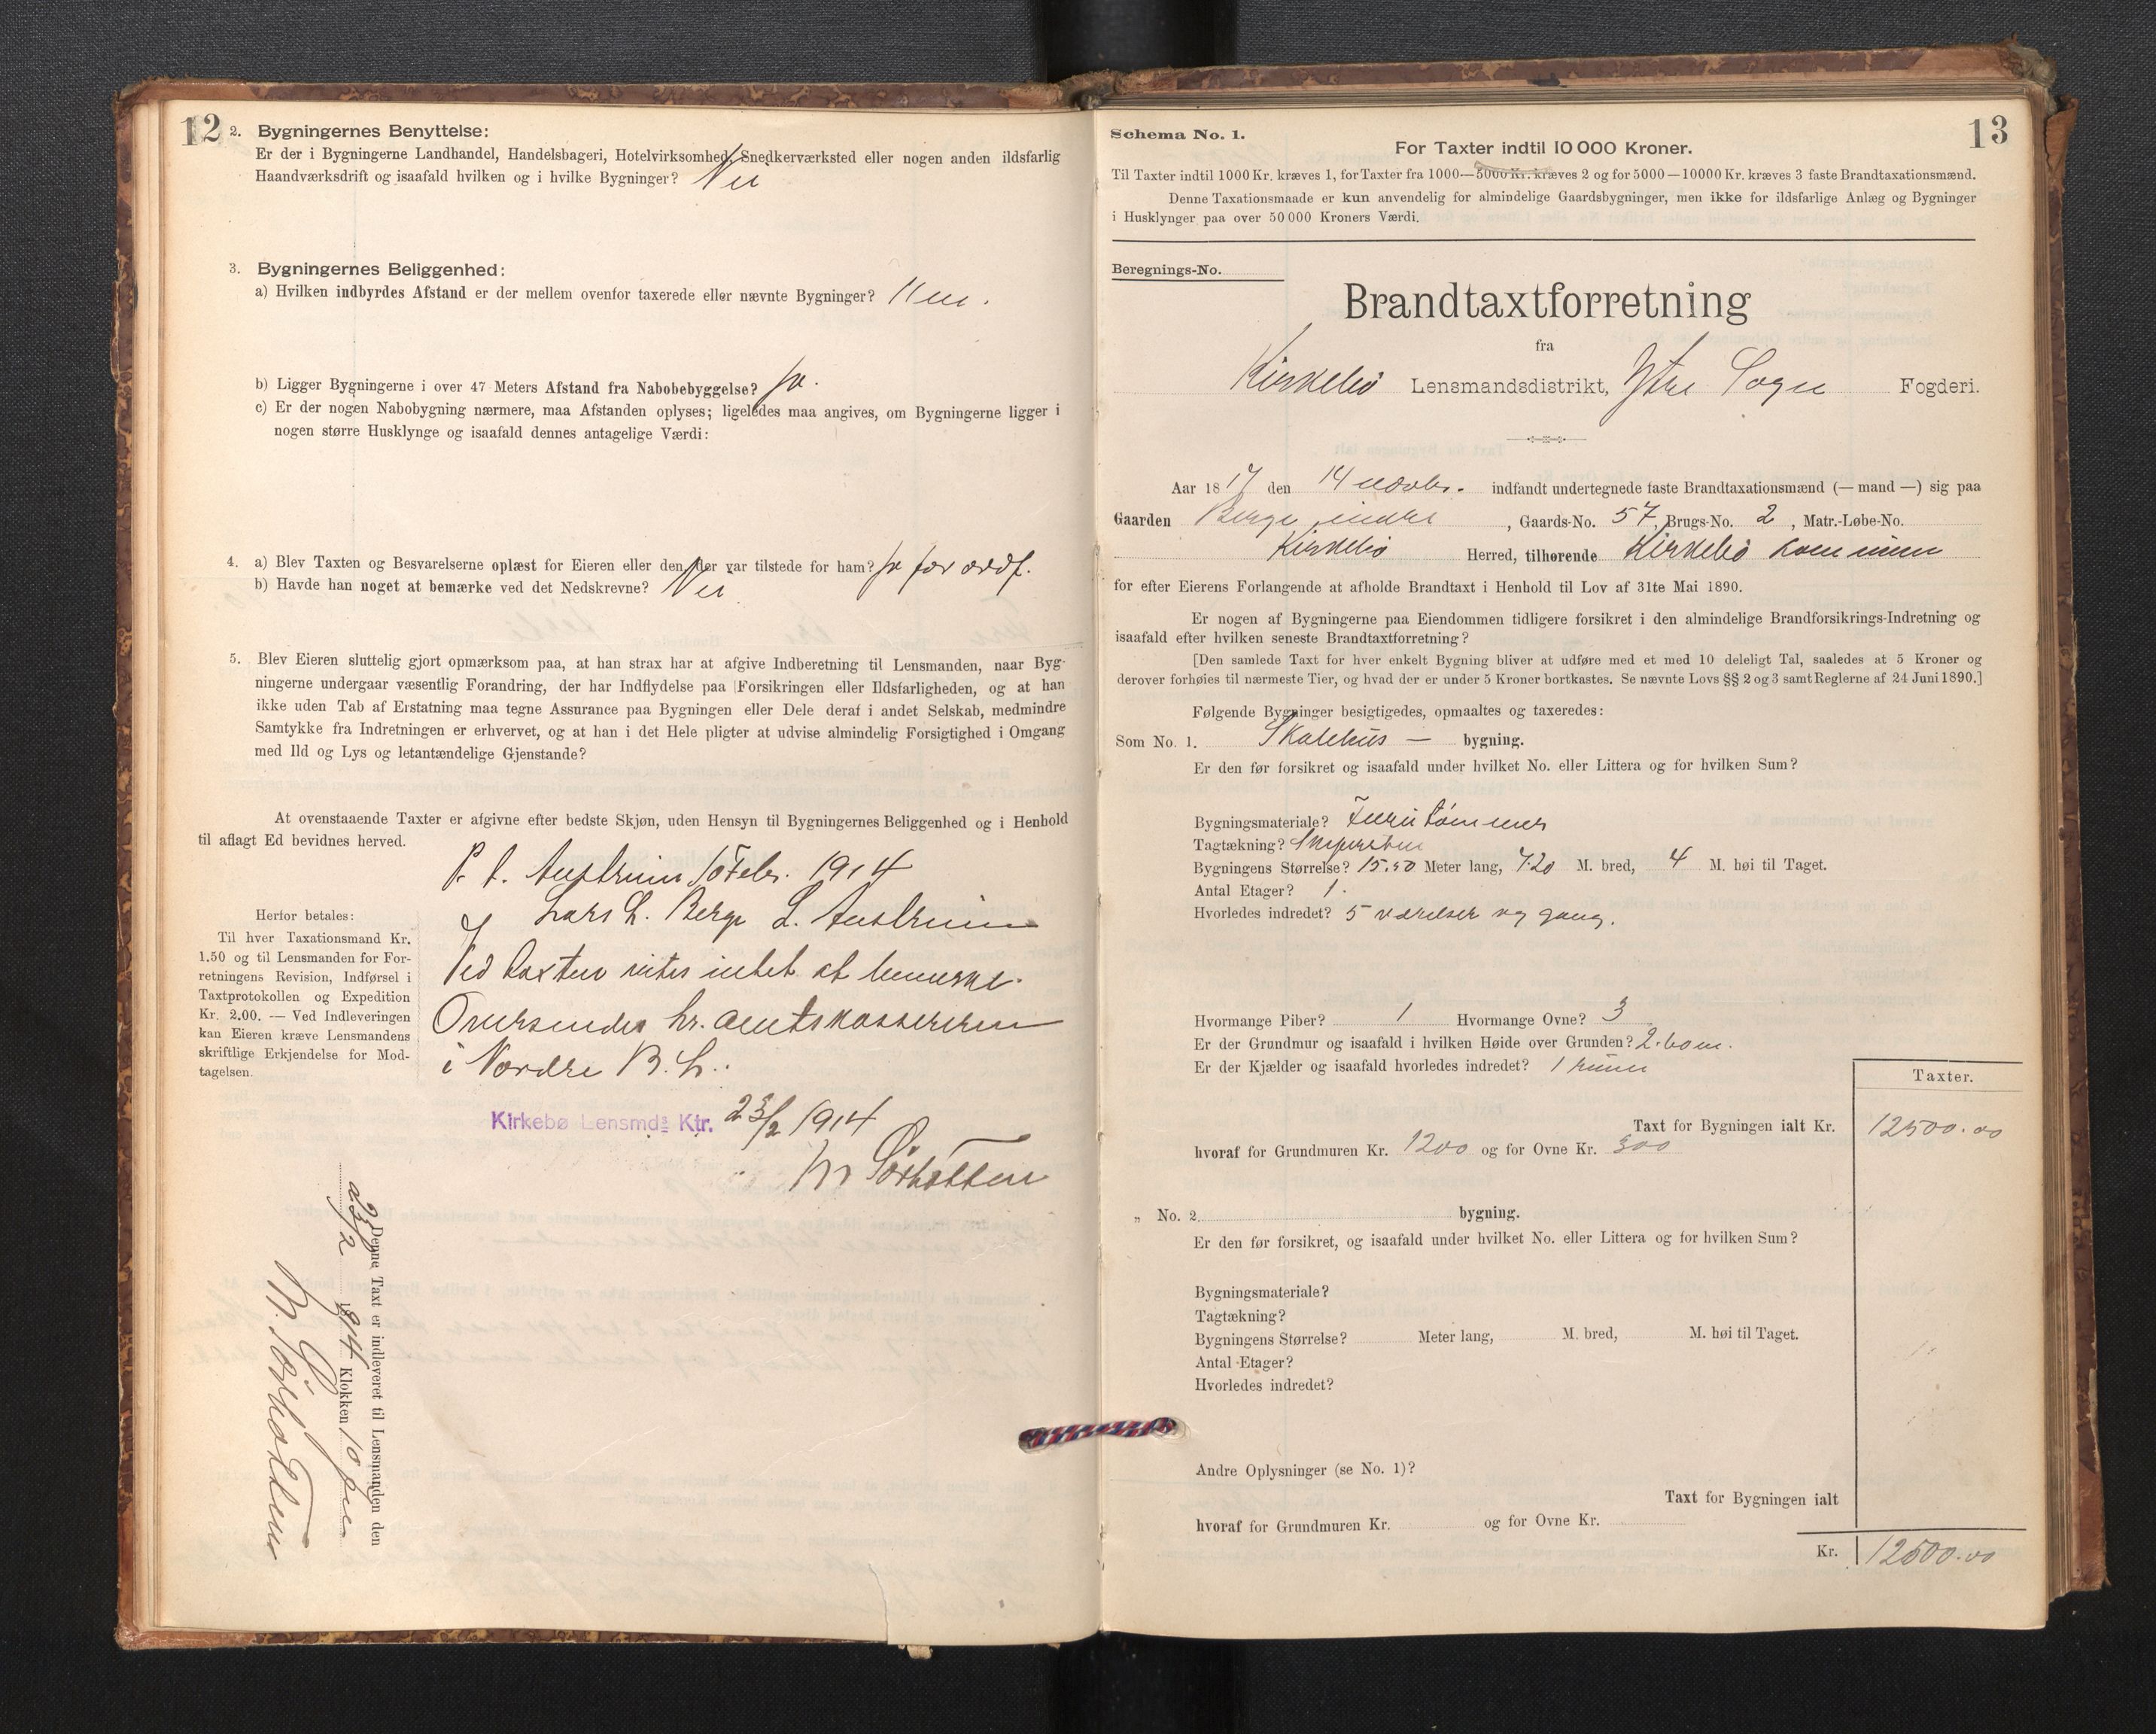 12
2. Bygningernes Benyttelse:
Er der i Bygningerne Landhandel, Handelsbageri, Hotelvirksomhed, Snedkerværksted eller nogen anden ildsfarlig
Haandværksdrift og isaafald hvilken og i hvilke Bygninger? Nei
3. Bygningernes Beliggenhed:
a) Hvilken indbyrdes Afstand er der mellem ovenfor taxerede eller nævnte Bygninger?
b) Ligger Bygningerne i over 47 Meters Afstand fra Nabobebyggelse? Ja.
c) Er der nogen Nabobygning nærmere, maa Afstanden oplyses; ligeledes maa angives, om Bygningerne ligger i
nogen større Husklynge og isaafald dennes antagelige Værdi:
4. a) Blev Taxten og Besvarelserne oplæst for Eieren eller den, der var tilstede for ham? Ja for ordf.
b) Havde han noget at bemærke ved det Nedskrevne? Nei
5. Blev Eieren sluttelig gjort opmærksom paa, at han strax har at afgive Indberetning til Lensmanden, naar Byg-
ningerne undergaar væsentlig Forandring, der har Indflydelse paa Forsikringen eller Ildsfarligheden, og at han
ikke uden Tab af Erstatning maa tegne Assurance paa Bygningen eller Dele deraf i andet Selskab, medmindre
Samtykke fra Indretningen er erhvervet, og at han i det Hele pligter at udvise almindelig Forsigtighed i Omgang
med Ild og Lys og letantændelige Gjenstande?
At ovenstaaende Taxter er afgivne efter bedste Skjøn, uden Hensyn til Bygningernes Beliggenhed og i Henhold
til aflagt Ed bevidnes herved.
P. t. Austreim 10 Febr. 1914
Lars L. Berge L. Austreim
Ved Taxten vites intet at bemerke.
Oversendes hr. amtskassereren
i Nordre B. h.
Kirkebø Lensmds Ktr. 23/2 1914
M Sørbotten
Herfor betales:
Til hver Taxationsmand Kr.
1.50 og til Lensmanden for For-
retningens Revision, Indførsel i
Taxtprotokollen og Expedition
Kr. 2.00. — Ved Indleveringen
kan Eieren kræve Lensmandens
skriftlige Erkjendelse for Mod-
tagelsen.
Denne Taxt er indleveret til Lensmanden den
23/2 1914 Klokken 10 fm
M. Sørbotten
13
Schema No. 1.
For Taxter indtil 10 000 Kroner.
Til Taxter indtil 1000 Kr. kræves 1, for Taxter fra 1000—5000 Kr. kræves 2 og for 5000—10000 Kr. kræves 3 faste Brandtaxationsmænd.
Denne Taxationsmaade er kun anvendelig for almindelige Gaardsbygninger, men ikke for ildsfarlige Anlæg og Bygninger
i Husklynger paa over 50 000 Kroners Værdi.
Beregnings-No.
Brandtaxtforretning
fra
Kirkebø Lensmandsdistrikt, Ytre Sogn Fogderi.
Aar 18 17 den 14 novbr. indfandt undertegnede faste Brandtaxationsmænd (— mand —) sig paa
Gaarden Berge indre, Gaards-No. 57, Brugs-No. 2, Matr.-Løbe-No.
Kirkebø Herred, tilhørende Kirkebø kommune
for efter Eierens Forlangende at afholde Brandtaxt i Henhold til Lov af 31te Mai 1890.
Er nogen af Bygningerne paa Eiendommen tidligere forsikret i den almindelige Brandforsikrings-Indretning og
isaafald efter hvilken seneste Brandtaxtforretning?
[Den samlede Taxt for hver enkelt Bygning bliver at udføre med et med 10 deleligt Tal, saaledes at 5 Kroner og
derover forhøies til nærmeste Tier, og hvad der er under 5 Kroner bortkastes. Se nævnte Lovs §§ 2 og 3 samt Reglerne af 24 Juni 1890.]
Følgende Bygninger besigtigedes, opmaaltes og taxeredes:
Som No. 1. Skolehus — bygning.
Er den før forsikret og isaafald under hvilket No. eller Littera og for hvilken Sum?
Bygningsmateriale? Furutømmer
Tagtækning? Skifersten
Bygningens Størrelse? 15.50 Meter lang, 7.20 M. bred, 4 M. høi til Taget.
Antal Etager? 1.
Hvorledes indredet? 5 værelser og gang.
Hvormange Piber? 1 Hvormange Ovne? 3
Er der Grundmur og isaafald i hvilken Høide over Grunden? 2.60 m.
Er der Kjælder og isaafald hvorledes indredet? 1 rum
Taxter.
Taxt for Bygningen ialt Kr. 12500.00
hvoraf for Grundmuren Kr. 1200 og for Ovne Kr. 300
„ No. 2 bygning.
Er den før forsikret, og isaafald under hvilket No. eller Littera og for hvilken Sum?
Bygningsmateriale?
Tagtækning?
Bygningens Størrelse? Meter lang, M. bred, M. høi til Taget.
Antal Etager?
Hvorledes indredet?
Andre Oplysninger (se No. 1)?
Taxt for Bygningen ialt
hvoraf for Grundmuren Kr. og for Ovne Kr.
Kr. 12500.00